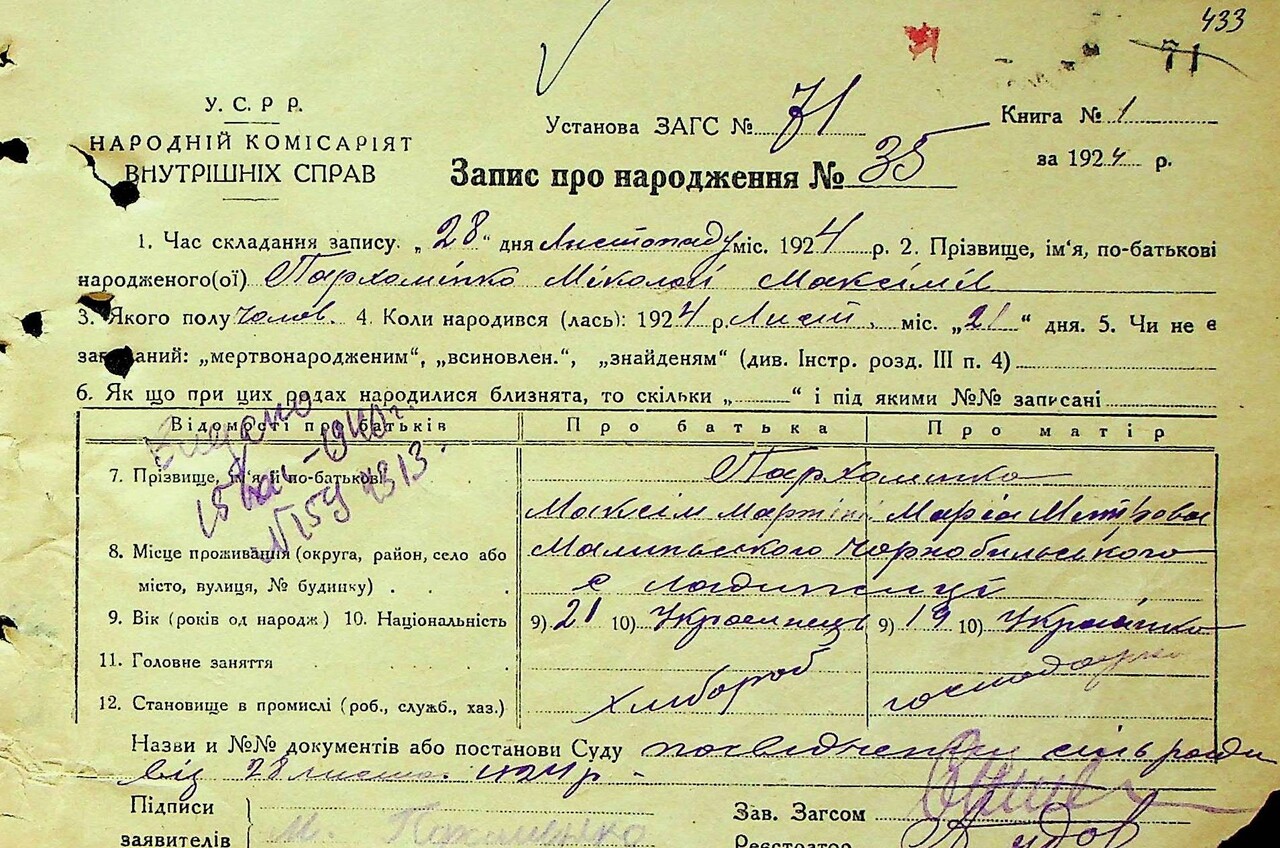 433
71
У. С. Р Р.
НАРОДНІЙ КОМІСАРІЯТ
ВНУТРІШНІХ СПРАВ
Установа ЗАГС № 71
Книга № 1
за 1924 р.
Запис про народження № 35
1. Час складання запису. „28“ дня Листопаду міс. 1924 р. 2. Прізвище, ім‘я, по-батькові
народженого(ої) Пархоменко Міколай Максімів
3. Якого полу чолов. 4. Коли народився (лась): 1924 р. Лист. міс. „21“ дня. 5. Чи не є
заказаний: „мертвонародженим“, „всиновлен.“, „знайденям“ (див. Інстр. розд. III п. 4)
6. Як що при цих родах народилися близнята, то скільки „ “ і під якими №№ записані
Відомості про батьків Про батька Про матір
Видано
15 1940 г.
N 159
7. Прізвище, ім‘я й по-батькові Пархоменко
Максім Мартинів Марія Митрова
8. Місце проживання (округа, район, село або Малинського Чорнобильського
місто, вулиця, № будинку) . . с Лодижичі
9. Вік (років од народж) 10. Національність 9) 21 10) Украинець 9) 19 10) Українка
11. Головне заняття
12. Становище в промислі (роб., служб., хаз.) хлібороб господарка
Назви и №№ документів або постанови Суду посвідчення сільради
від 28 листоп. 1924 р.
Підписи
заявителів М. Пархоменко
Зав. Загсом
Реєстратор